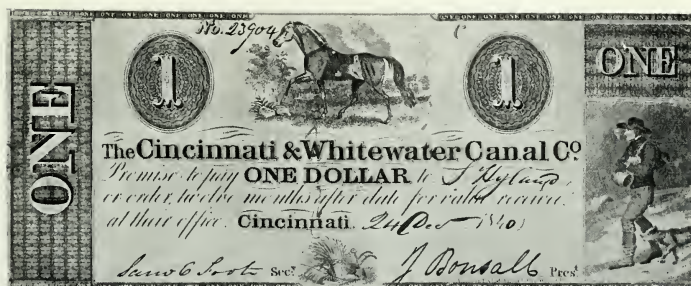 No. 23904
ONE
1
1
ONE
The Cincinnati & Whitewater Canal Co.
Promise to pay ONE DOLLAR to S Pyland,
or order, twelve months after date for value receiv.
at their office. Cincinnati. 24 Dec 1840
Sec.y
J Bonsall Pres.t